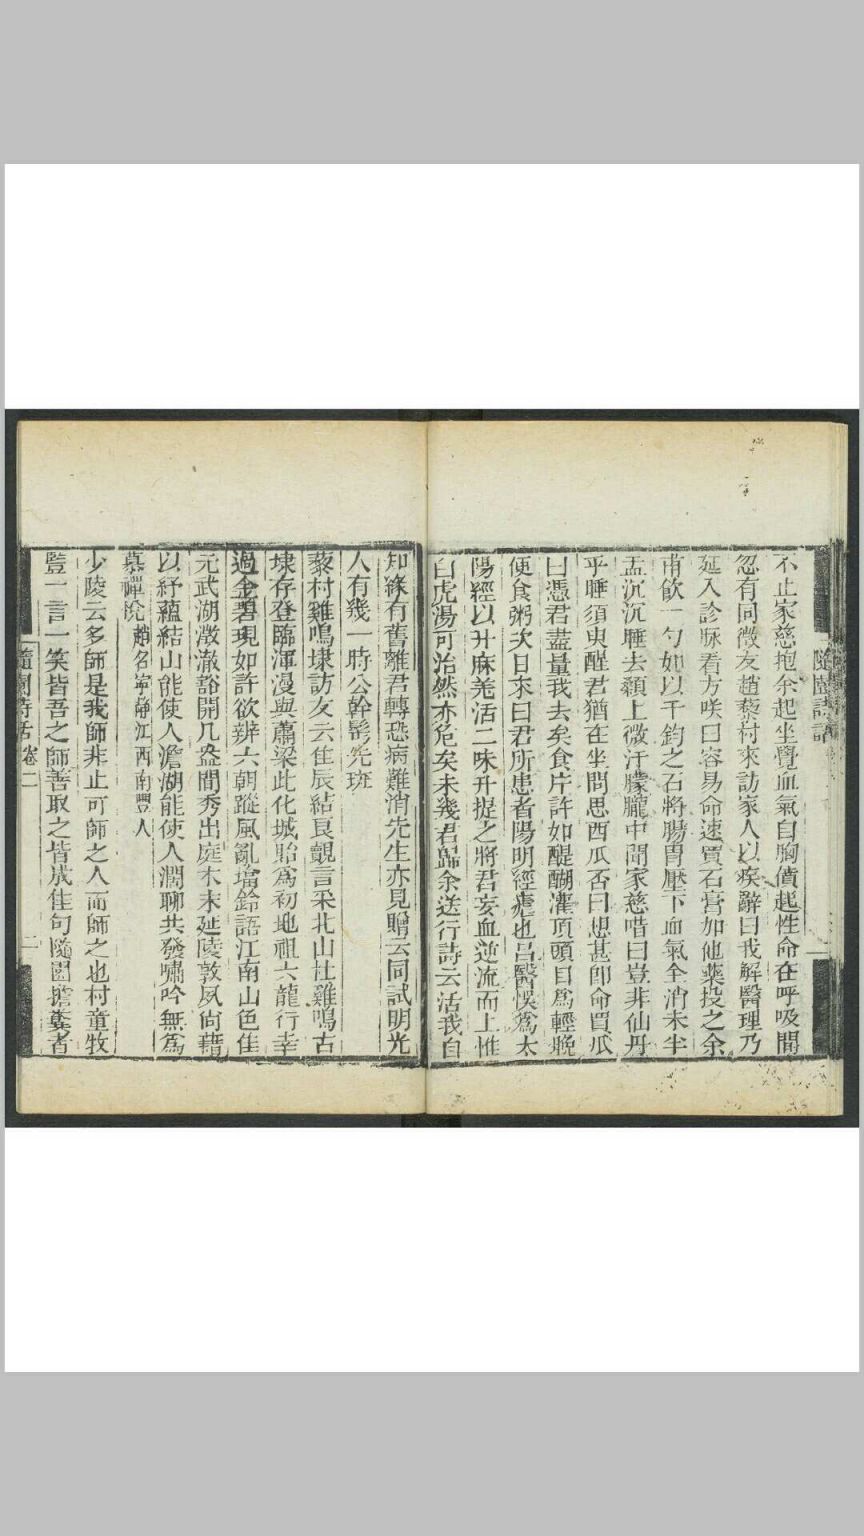 隨園詩話
不止家慈抱余起坐覺血氣自胸僨起性命在呼吸間
忽有同徵友趙藜村來訪家人以疾辭曰我解醫理乃
延入診脉看方咲曰容易命速買石膏加他藥投之余
甫飲一勺如以千鈞之石將腸胃壓下血氣全消未半
盂沉沉睡去顙上微汗朦朧中聞家慈唶曰豈非仙丹
乎睡須臾醒君猶在坐問思西瓜否曰想甚卽命買瓜
曰憑君盡量我去矣食片許如醍醐灌頂頭目爲輕晚
便食粥次日來曰君所患者陽明經瘧也呂醫悞爲太
陽經以升麻羌活二味升提之將君妄血逆流而上惟
白虎湯可治然亦危矣未幾君歸余送行詩云活我自
知緣有舊離君轉恐病難消先生亦見贈云同試明光
人有幾一時公幹鬂先班
藜村雞鳴埭訪友云佳辰結良覿言采北山杜雞鳴古
埭存登臨渾漫與蕭梁此化城貽爲初地祖六龍行幸
過金碧現如許欲辨六朝蹤風亂壋鈴語江南山色佳
元武湖澂澈豁開几席間秀出庭木末延陵敦夙尙藉
以紓蘊結山能使人澹湖能使人濶聊共發嘯吟無爲
慕禪悅趙名寧靜江西南豐人
少陵云多師是我師非止可師之人而師之也村童牧
豎一言一笑皆吾之師善取之皆成佳句隨園擔糞者
隨園詩話卷二
二